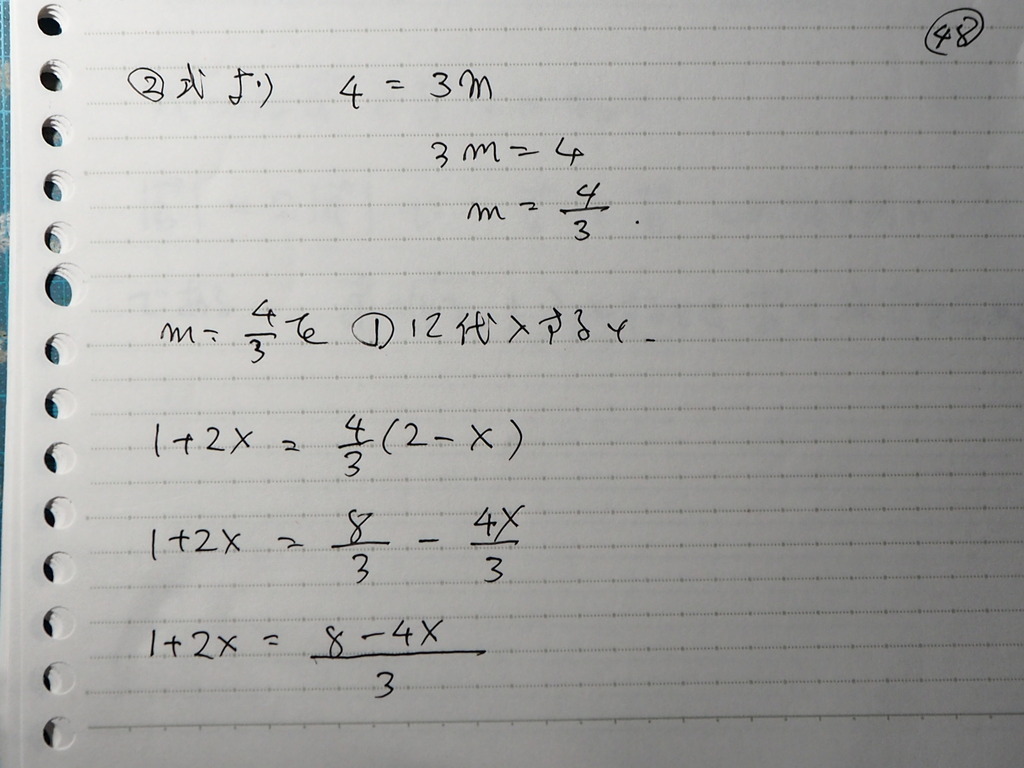 ㊽
②式より 4 = 3m
3m = 4
m = 4/3.
m = 4/3を ①に代入すると
1+2x = 4/3(2-x)
1+2x = 8/3 - 4x/3
1+2x = 8-4x/3